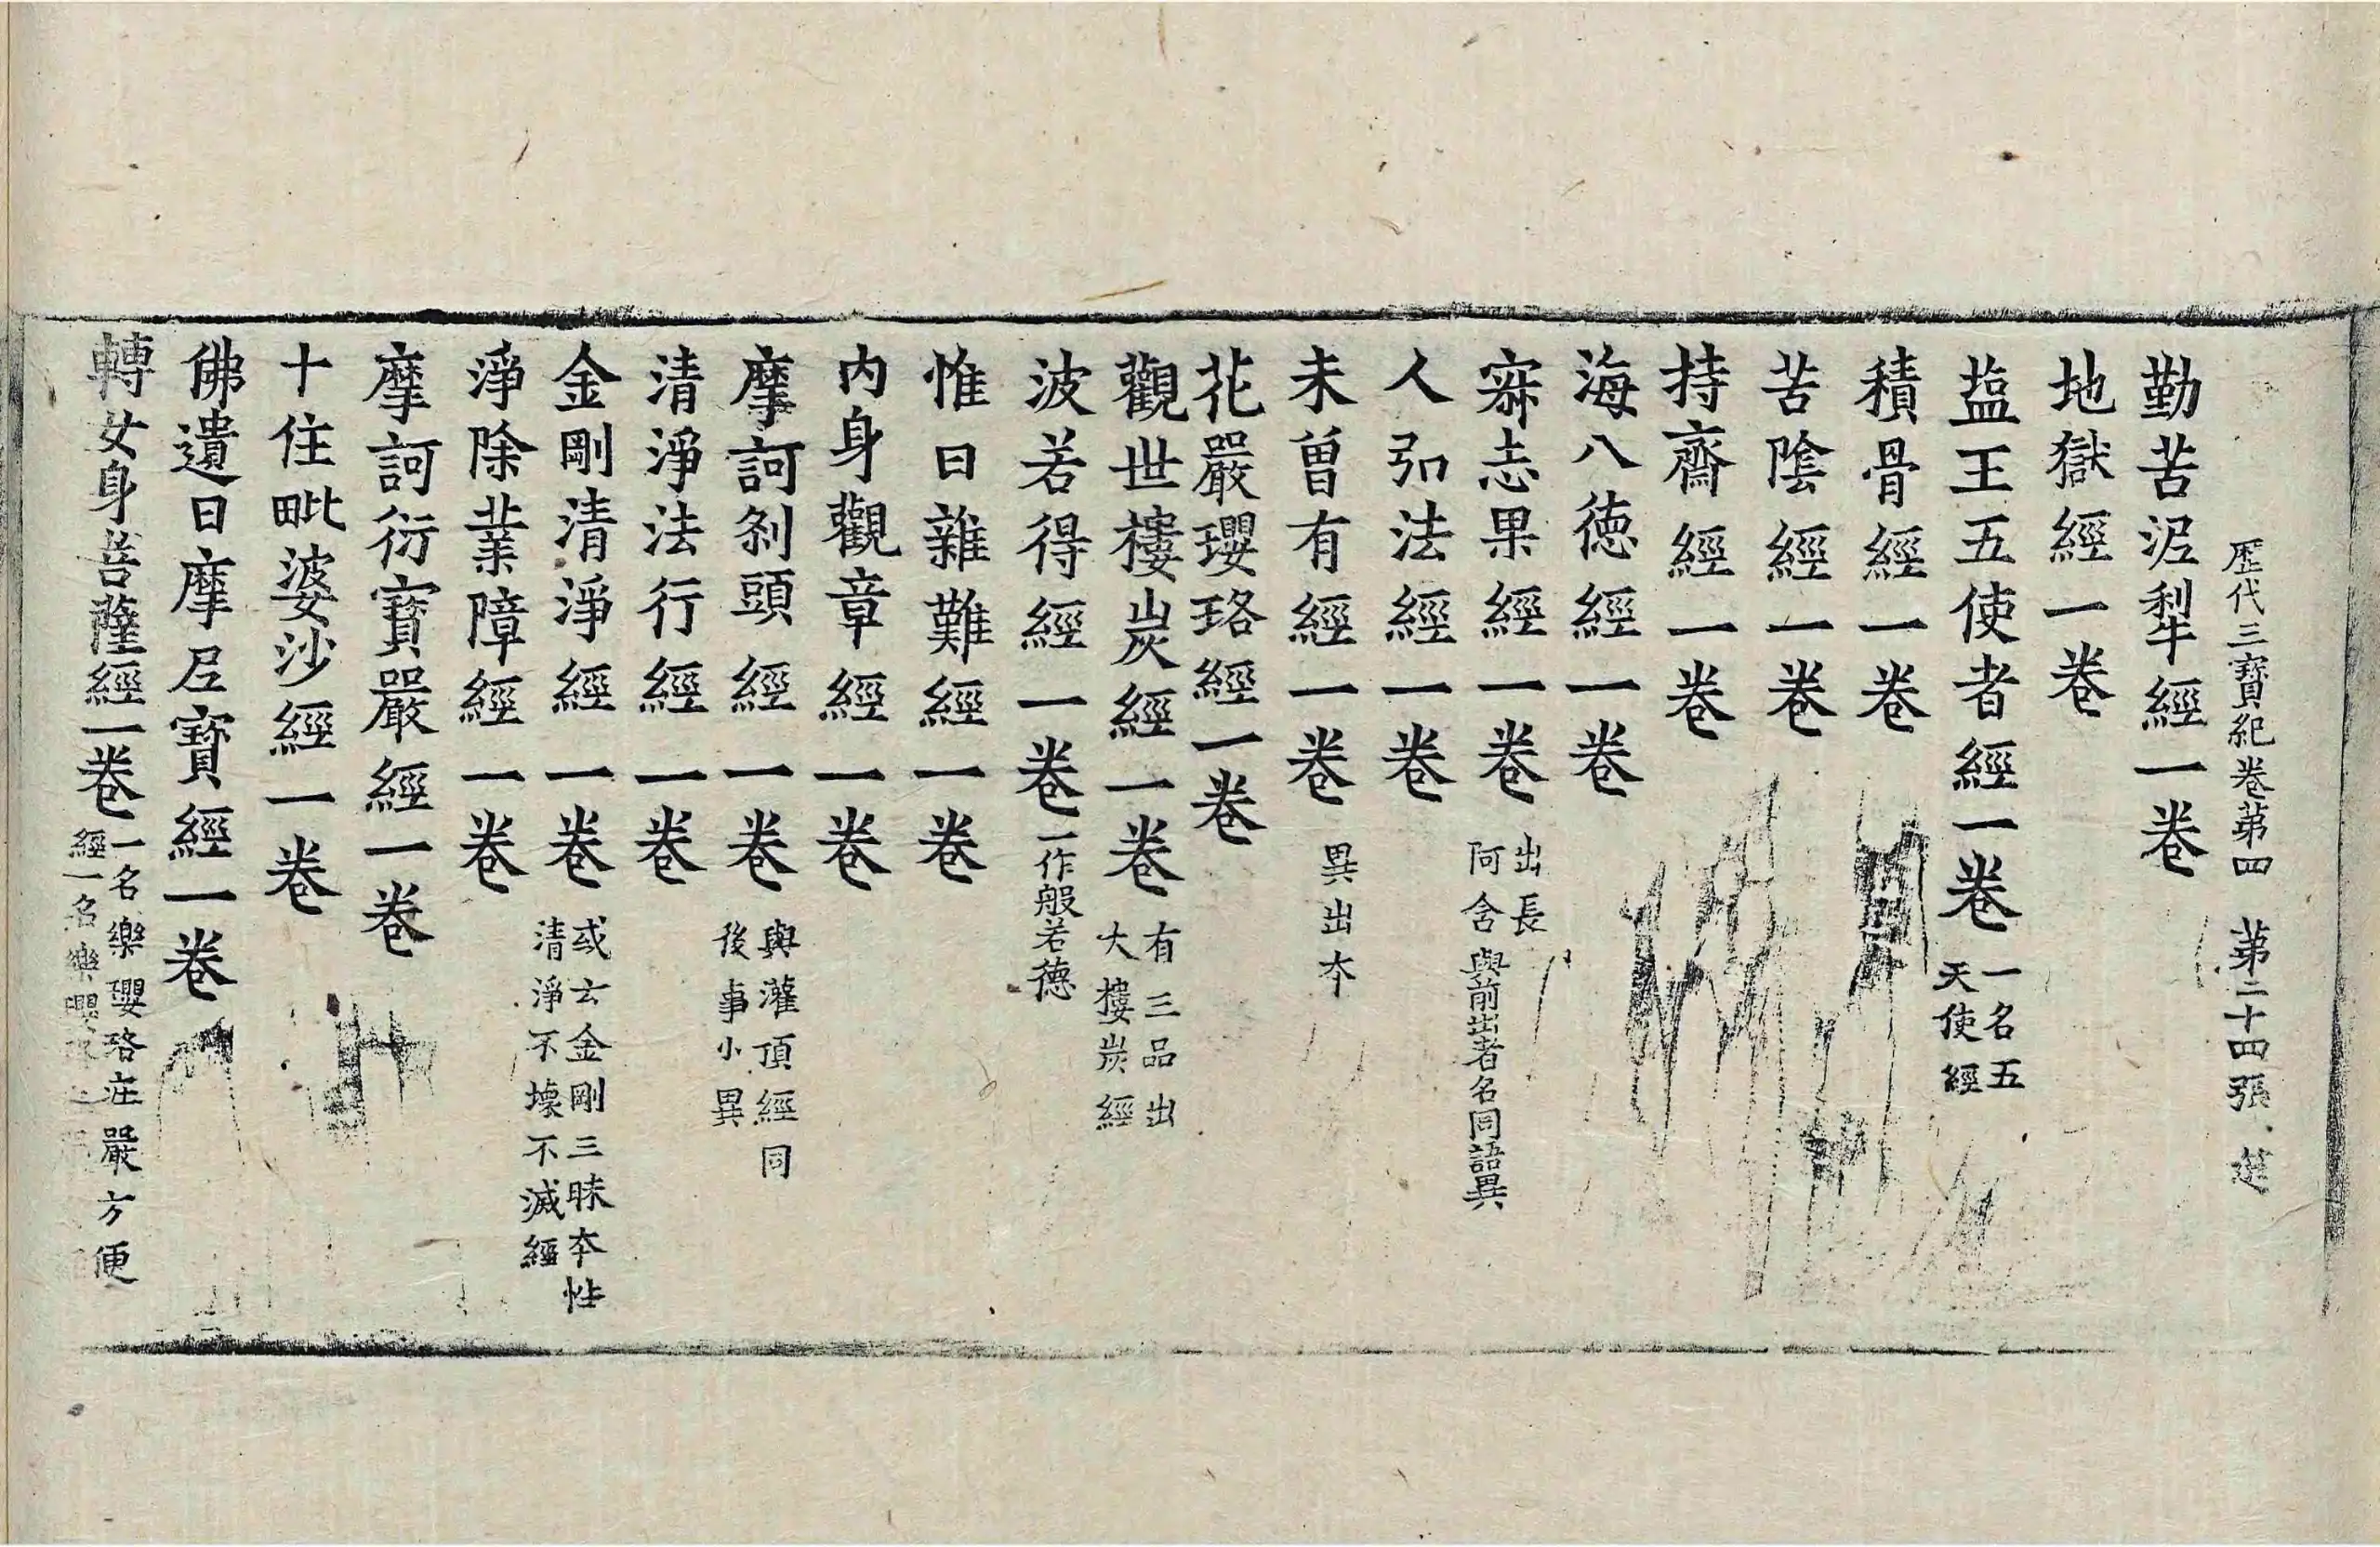 歷代三寶紀卷苐四 苐二十四張 楚
勤苦泥犁經一卷
地獄經一卷
蓝王五使者經一卷 一名五天使經
積骨經一卷
苦陰經一卷
持齋經一卷
海八德經一卷
寂志果經一卷 出長阿含與前出者名同語異
人弘法經一卷
未曽有經一卷 異出本
花嚴瓔珞經一卷
觀世樓炭經一卷 有三品出大樓炭經
波若得經一卷 一作般若德
惟日雜難經一卷
内身觀章經一卷
摩訶刹頭經一卷 與灌頂經同後事小異
清淨法行經一卷
金剛清淨經一卷 或云金剛三昧本性清淨不壞不滅經
淨除業障經一卷
摩訶衍寶嚴經一卷
十住毗婆沙經一卷
佛遺日摩尼寶經一卷
轉女身菩薩經一卷 一名樂瓔珞庄嚴方便經一名樂瓔